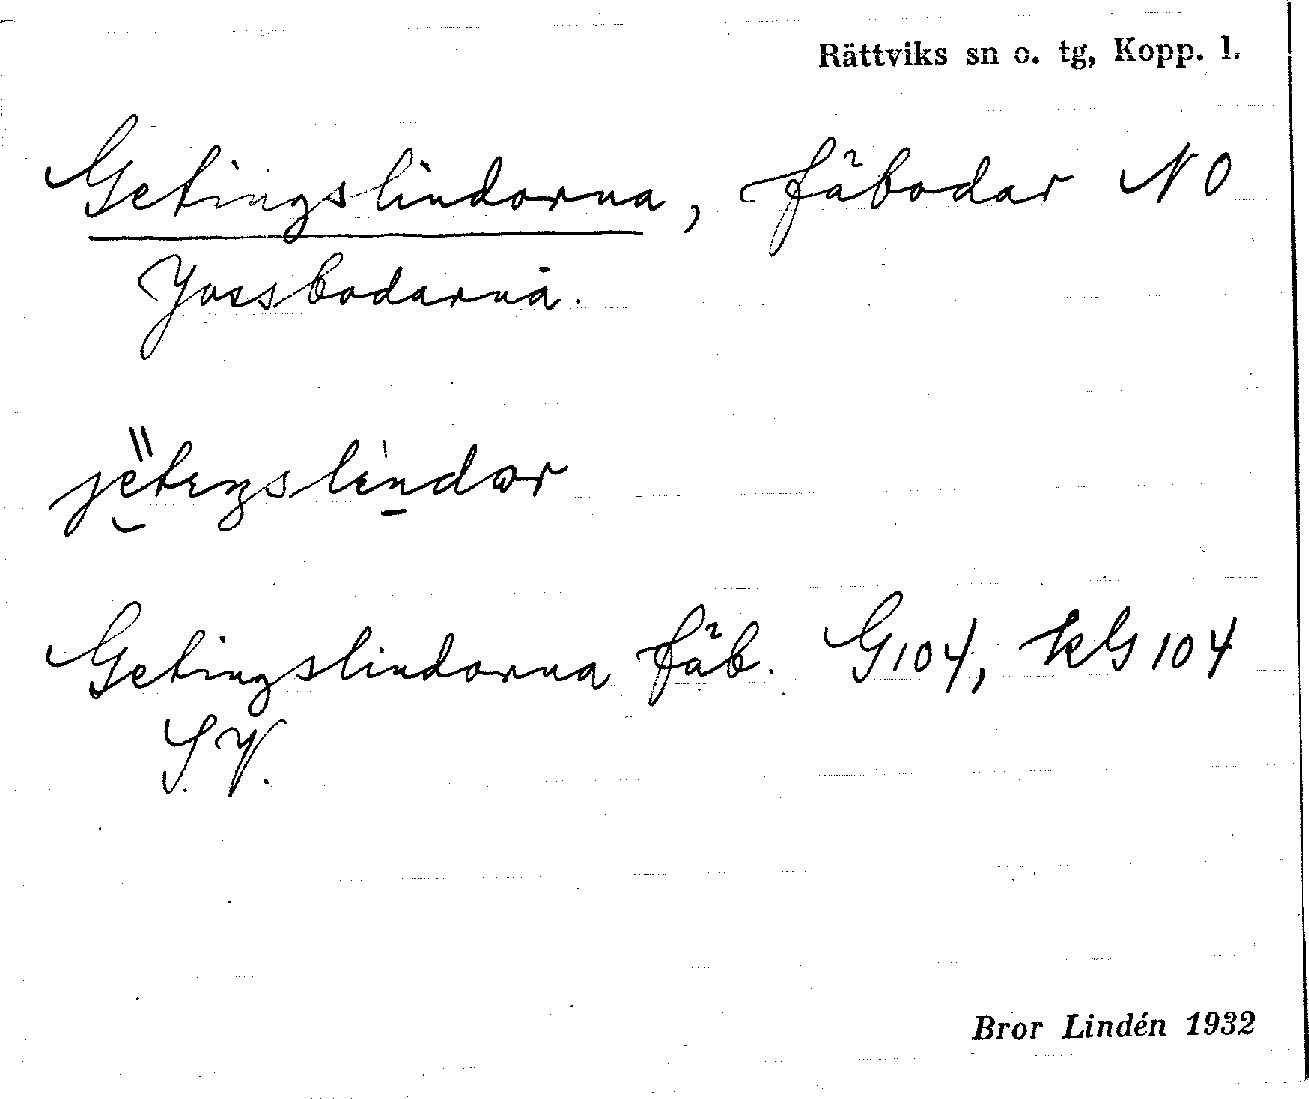 Rättviks sn o. tg, Kopp. l.
Getingslindorna, fäbodar NO
Jossbodarna.
jètıŋslindor
Getingslindorna fäb. G104, kG 104
S.V.
Bror Lindén 1932